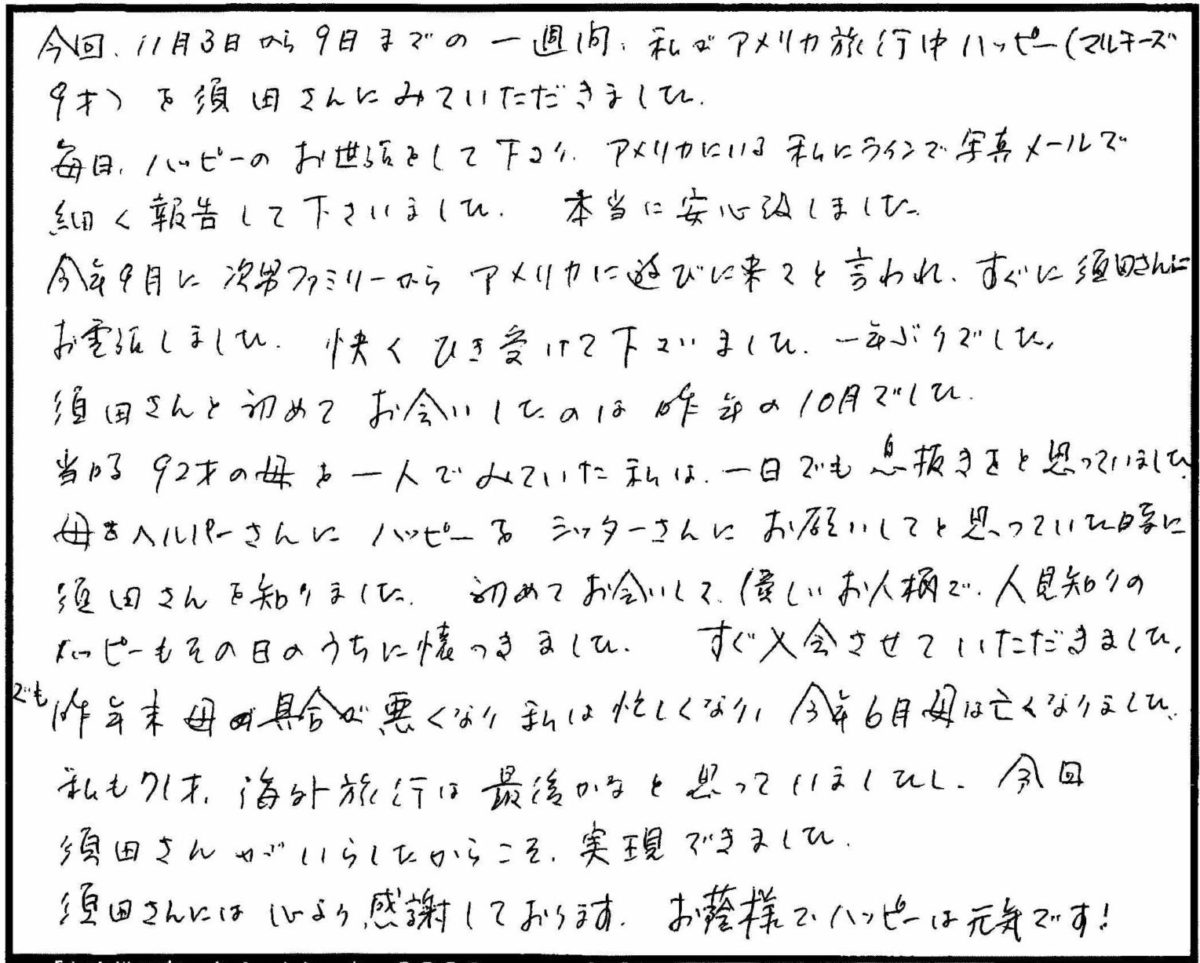 今回、11月3日から9日までの一週間、私がアメリカ旅行中ハッピー(マルチーズ
9才)を須田さんにみていただきました。
毎日、ハッピーのお世話をして下さり、アメリカにいる私にラインで写真メールで
細く報告して下さいました。 本当に安心致しました。
今年9月に次男ファミリーからアメリカに遊びに来てと言われ、すぐに須田さんに
お電話しました。 快くひき受けて下さいました。一年ぶりでした。
須田さんと初めてお会いしたのは昨年の10月でした。
当時92才の母を一人でみていた私は、一日でも息抜きをと思っていました。
母をヘルパーさんにハッピーをシッターさんにお願いしてと思っていた時に
須田さんを知りました。 初めてお会いして、優しいお人柄で、人見知りの
ハッピーもその日のうちに懐つきました。 すぐ入会させていただきました。
でも昨年末母の具合が悪くなり私は忙しくなり、今年6月母は亡くなりました。
私も71才、海外旅行は最後かなと思っていましたし、今回
須田さんがいらしたからこそ、実現できました。
須田さんには心より感謝しております。 お蔭様でハッピーは元気です!